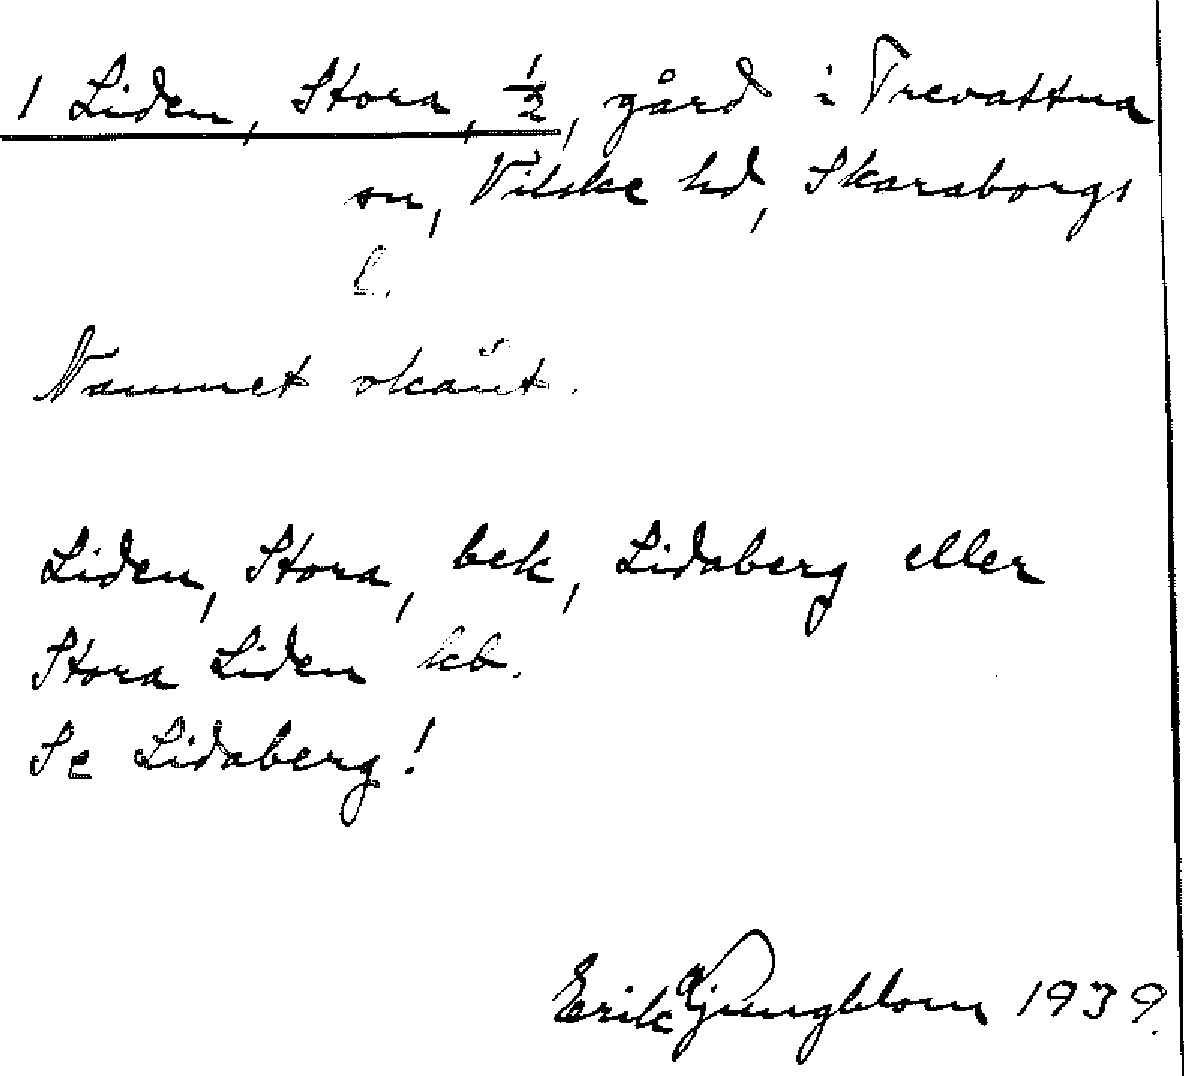 1 Liden, Stora, 1/2, gård i Trevattna
sn, Vilske hd, Skaraborgs
l.
Namnet okänt.
Liden, Stora, bek, Lidaberg eller
Stora Liden kb.
Se Lidaberg!
Erik Ljungblom 1939.